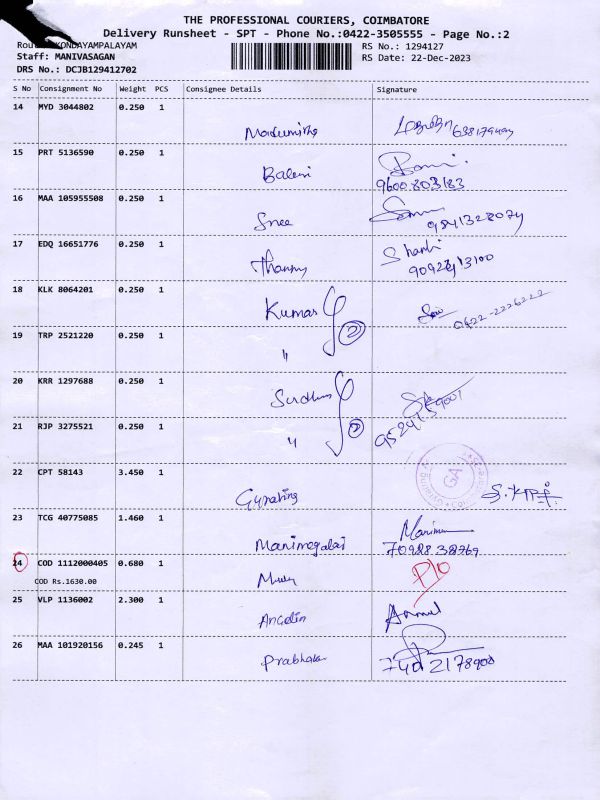 THE PROFESSIONAL COURIERS, COIMBATORE
Delivery Runsheet - SPT - Phone No.:0422-3505555 - Page No.:2
KONDAYAMPALAYAM RS No.: 1294127
Staff: MANIVASAGAN RS Date: 22-Dec-2023
DRS No.: DCJB129412702
S No Consignment No Weight PCS Consignee Details Signature
14 MYD 3044802 0.250 1
15 PRT 5136590 0.250 1
9600803183
16 MAA 105955508 0.250 1
Sree 9841328074
17 EDQ 16651776 0.250 1
Shanti
18 KLK 8064201 0.250 1
Kumar 2 0422-2226222
19 TRP 2521220 0.250 1
"
20 KRR 1297688 0.250 1
21 RJP 3275521 0.250 1
" 2
22 CPT 58143 3.450 1
GA
23 TCG 40775085 1.460 1
Manimegalai 7098838769
24 COD 1112000405 0.680 1
COD Rs.1630.00 P/O
25 VLP 1136002 2.300 1
Angelin
26 MAA 101920156 0.245 1
Prabhakar 7402178908